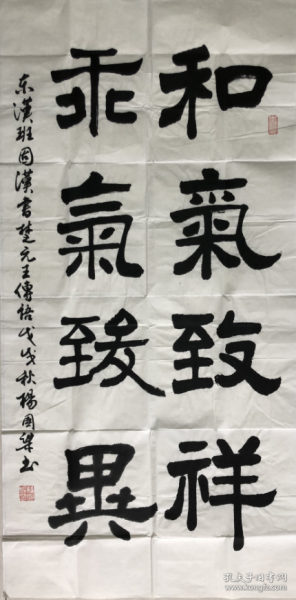 和氣致祥
乖氣致異
东漢班固漢書楚元王傳语戊戌秋楊國樑书
孔夫子旧书网